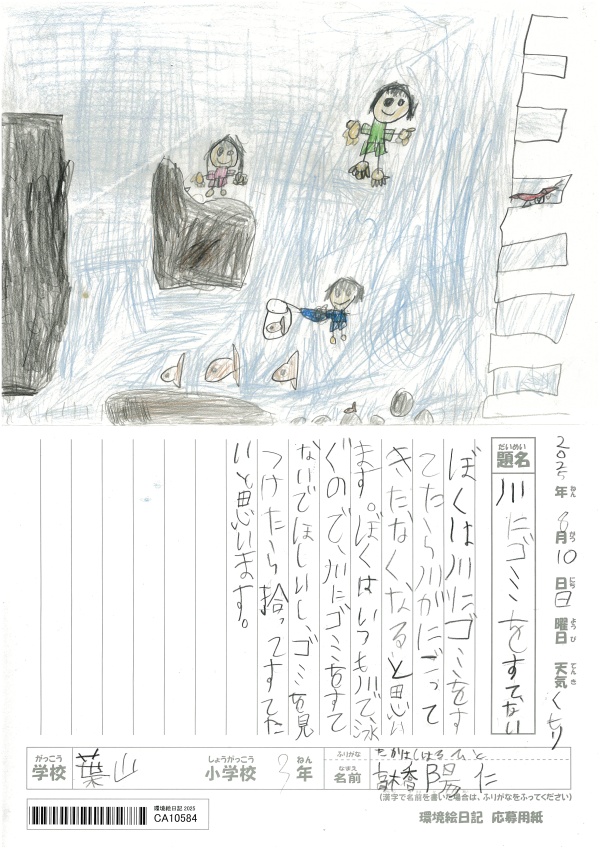 2025年ねん 8月がつ 10日にち 日曜日ようび 天気てんき くもり
だいめい
題名
川にゴミをすてない
ぼくは川にゴミをす
てたら川がにごって
きたなくなると思い
ます。ぼくはいつも川で、泳
ぐので、川にゴミをすて
ないでほしいし、ゴミを見
つけたら拾ってすてた
いと思います。
がっこう
学校
葉山
しょうがっこう
小学校
3年ねん
ふりがな
たかはしはるひと
なまえ
名前
髙橋陽仁
(漢字で名前を書いた場合は、ふりがなをふってください)
環境絵日記 2025
CA10584
環境絵日記 応募用紙